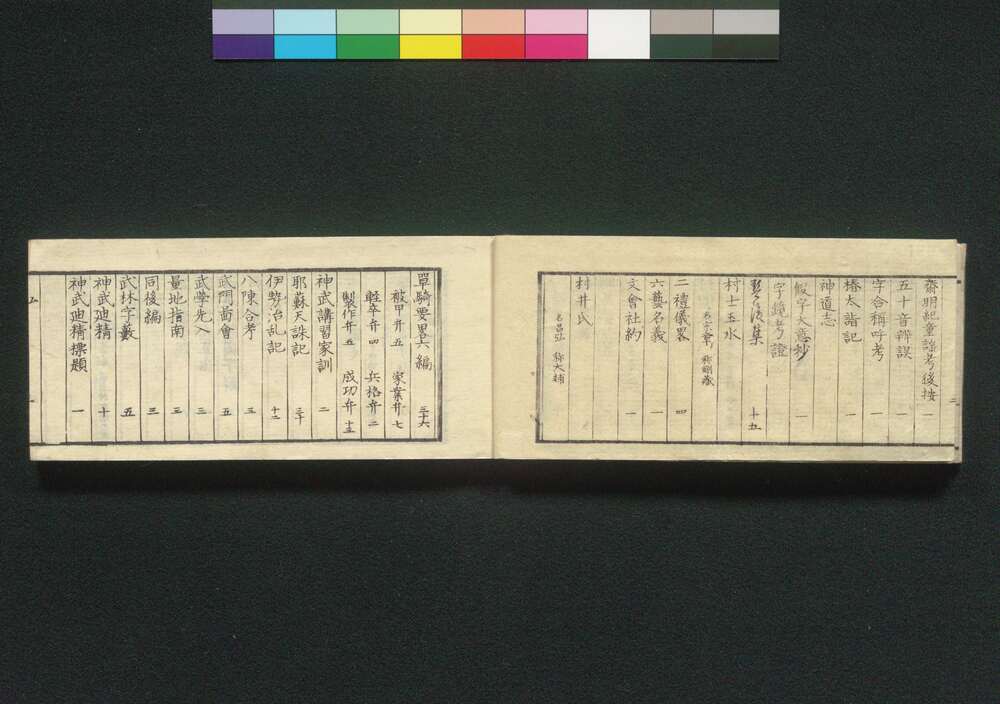 齋明紀童謠考後按 一
五十音辨誤 一
字合稱呼考 一
椿太詣記 一
神道志
假字大意抄 一
字鏡考證
琴後集 十五
村士玉水
名宗章 称剛藏
二禮儀畧 四
六藝名義 一
文會社約 一
村井氏
名昌弘 称大輔
單騎要畧六編 三十六
被甲弁 五 家業弁 七
軽卒弁 四 兵格弁 二
製作弁 五 成功弁 十三
神武講習家訓 二
耶蘇天誅記 三十
伊勢治乱記 十二
八陳合考 三
武門啚會 五
武學先入 三
量地指南 三
同後編 三
武林字藪 五
神武廸精 十
神武廸精標題 一